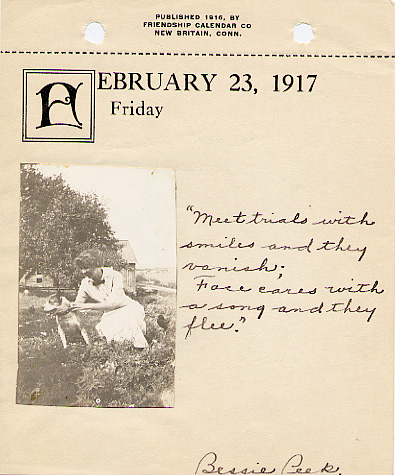 PUBLISHED 1916, BY
FRIENDSHIP CALENDAR CO
NEW BRITAIN, CONN.
FEBRUARY 23, 1917
Friday
"Meet trials with
smiles and they
vanish;
Face cares with
a song and they
flee."
Bessie Peek.